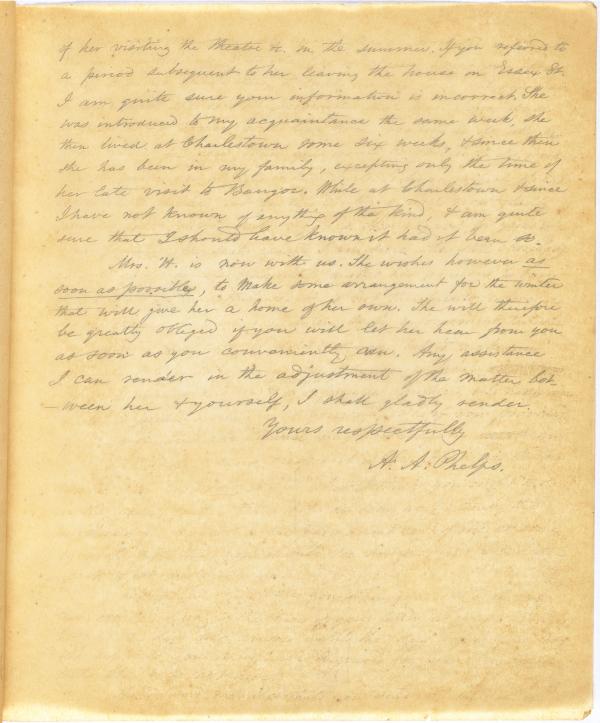 of her visiting the theatre &c. in the summer. If you referred to
a period subsequent to her leaving the house on Essex St.
I am quite sure your information is incorrect. She
was introduced to my acquaintance the same week, she
then lived at Charlestown some six weeks, & since then
she has been in my family, excepting only the time of
her late visit to Bangor. While at Charlestown & since
I have not known of anything of the kind, & am quite
sure that I should have known it had it been so.
Mrs. H. is now with us. She wishes however as
soon as possible, to make some arrangement for the winter
that will give her a home of her own. She will therefore
be greatly obliged if you will let her hear from you
as soon as you conveniently can. Any assistance
I can render in the adjustment of the matter bet-
-ween her & yourself, I shall gladly render.
Yours respectfully
A. A. Phelps.